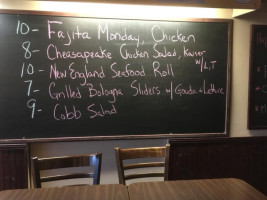 10- Fajita Monday, Chicken
8- Cheasapeake Chicken Salad, Kaiser
w/L,T
10- New England Seafood Roll
7- Grilled Bologna Sliders w/ Gouda & Lettuce
9- Cobb Salad